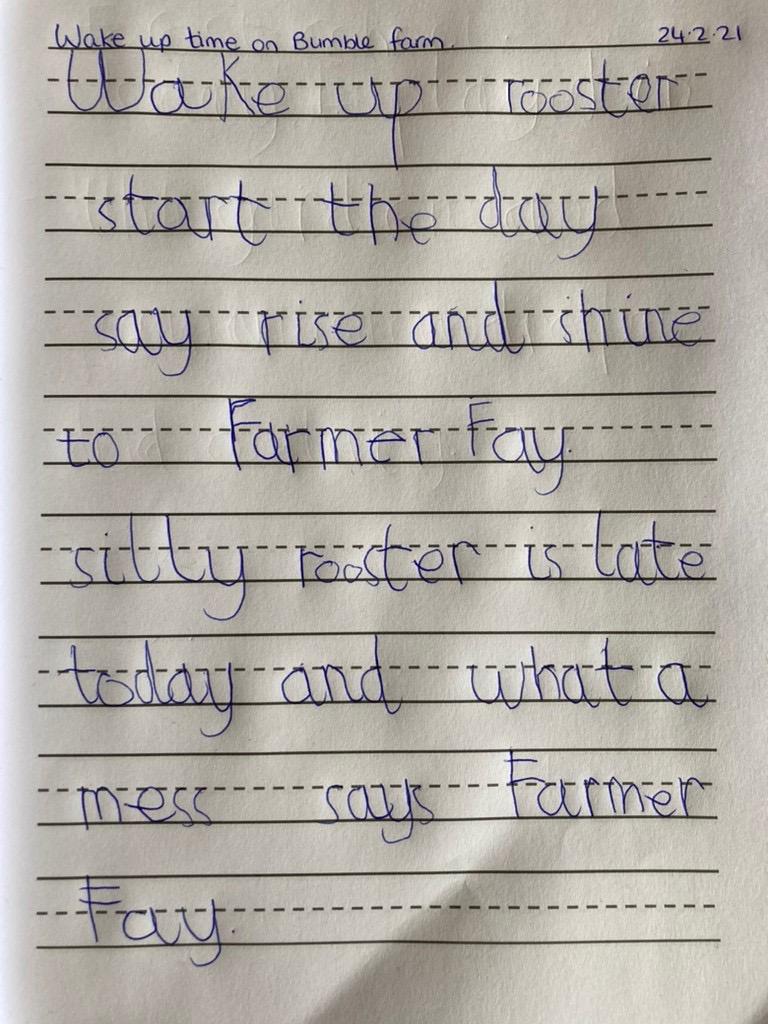 Wake up time on Bumble farm. 24.2.21
Wake up rooster
start the day
say rise and shine
to Farmer Fay.
silly rooster is late
today and what a
mess says Farmer
Fay.